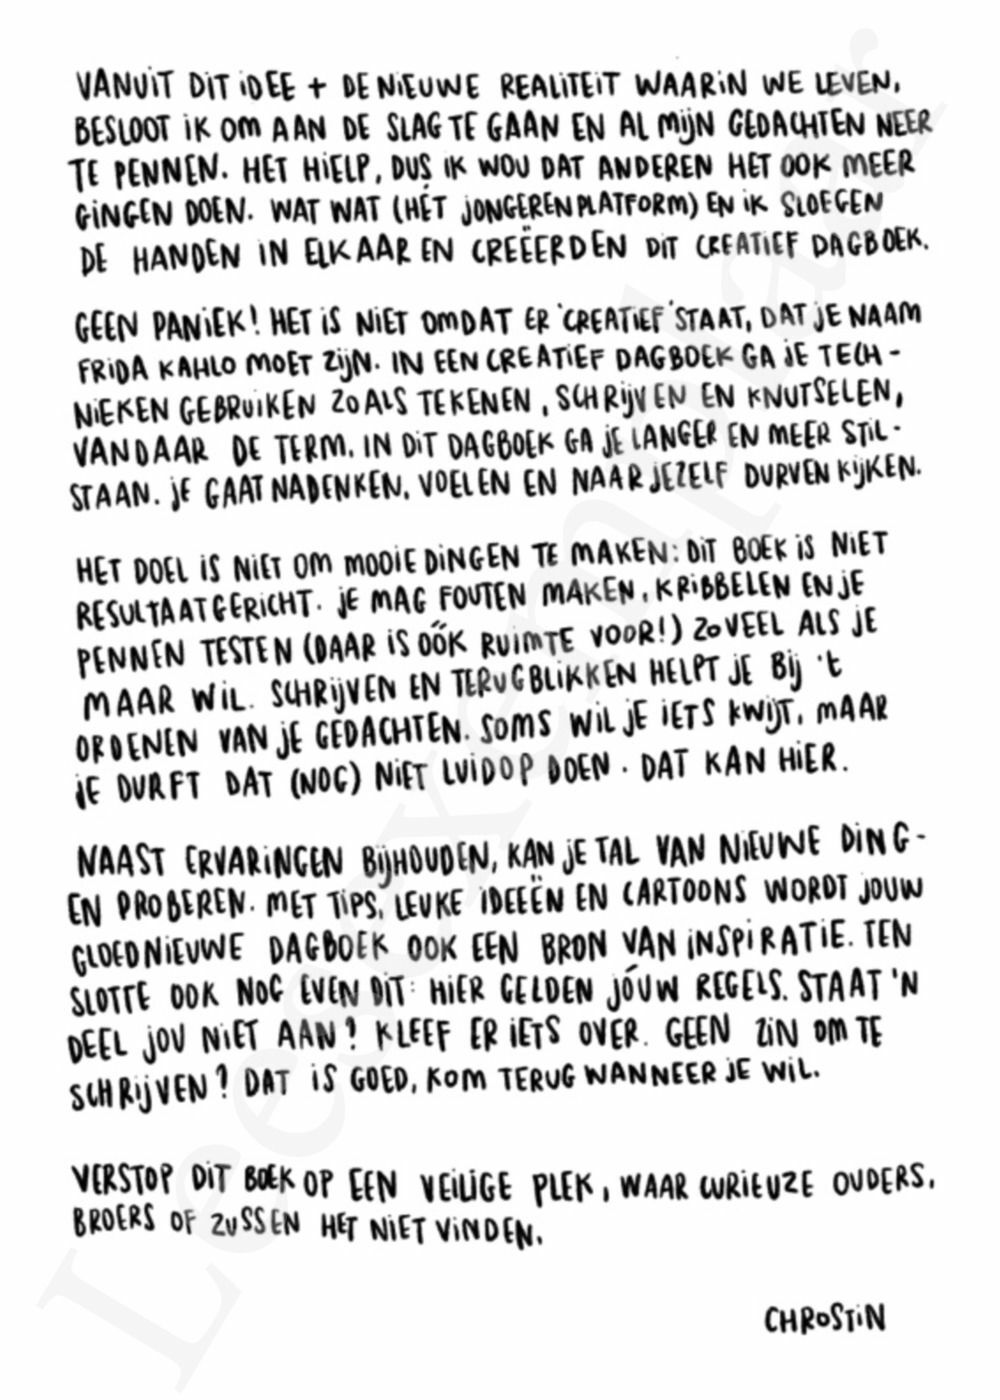 VANUIT DIT IDEE + DE NIEUWE REALITEIT WAARIN WE LEVEN,
BESLOOT IK OM AAN DE SLAG TE GAAN EN AL MIJN GEDACHTEN NEER
TE PENNEN. HET HIELP, DUS IK WOU DAT ANDEREN HET OOK MEER
GINGEN DOEN. WAT WAT (HÉT JONGERENPLATFORM) EN IK SLOEGEN
DE HANDEN IN ELKAAR EN CREËERDEN DIT CREATIEF DAGBOEK.
GEEN PANIEK! HET IS NIET OMDAT ER 'CREATIEF' STAAT, DAT JE NAAM
FRIDA KAHLO MOET ZIJN. IN EEN CREATIEF DAGBOEK GA JE TECH-
NIEKEN GEBRUIKEN ZOALS TEKENEN, SCHRIJVEN EN KNUTSELEN,
VANDAAR DE TERM. IN DIT DAGBOEK GA JE LANGER EN MEER STIL-
STAAN. JE GAAT NADENKEN, VOELEN EN NAAR JEZELF DURVEN KIJKEN.
HET DOEL IS NIET OM MOOIE DINGEN TE MAKEN: DIT BOEK IS NIET
RESULTAATGERICHT. JE MAG FOUTEN MAKEN, KRIBBELEN EN JE
PENNEN TESTEN (DAAR IS ÓÓK RUIMTE VOOR!) ZOVEEL ALS JE
MAAR WIL. SCHRIJVEN EN TERUGBLIKKEN HELPT JE BIJ 'T
ORDENEN VAN JE GEDACHTEN. SOMS WIL JE IETS KWIJT, MAAR
JE DURFT DAT (NOG) NIET LUIDOP DOEN. DAT KAN HIER.
NAAST ERVARINGEN BIJHOUDEN, KAN JE TAL VAN NIEUWE DING-
EN PROBEREN. MET TIPS, LEUKE IDEEËN EN CARTOONS WORDT JOUW
GLOEDNIEUWE DAGBOEK OOK EEN BRON VAN INSPIRATIE. TEN
SLOTTE OOK NOG EVEN DIT: HIER GELDEN JÓUW REGELS. STAAT 'N
DEEL JOU NIET AAN? KLEEF ER IETS OVER. GEEN ZIN OM TE
SCHRIJVEN? DAT IS GOED, KOM TERUG WANNEER JE WIL.
VERSTOP DIT BOEK OP EEN VEILIGE PLEK, WAAR CURIEUZE OUDERS,
BROERS OF ZUSSEN HET NIET VINDEN.
CHROSTIN
Leesexemplaar